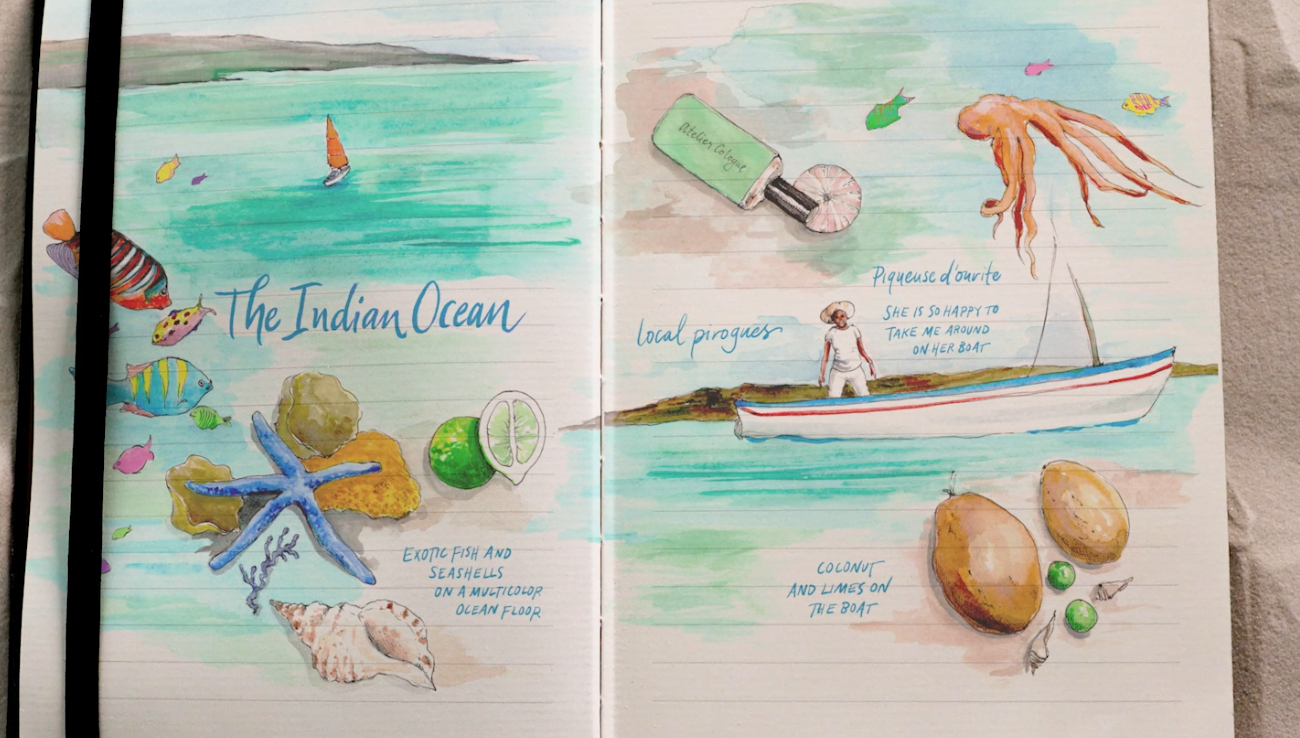 The Indian Ocean
EXOTIC FISH AND
SEASHELLS
ON A MULTICOLOR
OCEAN FLOOR
Atelier Cologne
Piqueuse d'ourite
SHE IS SO HAPPY TO
TAKE ME AROUND
ON HER BOAT
local pirogues
COCONUT
AND LIMES ON
THE BOAT